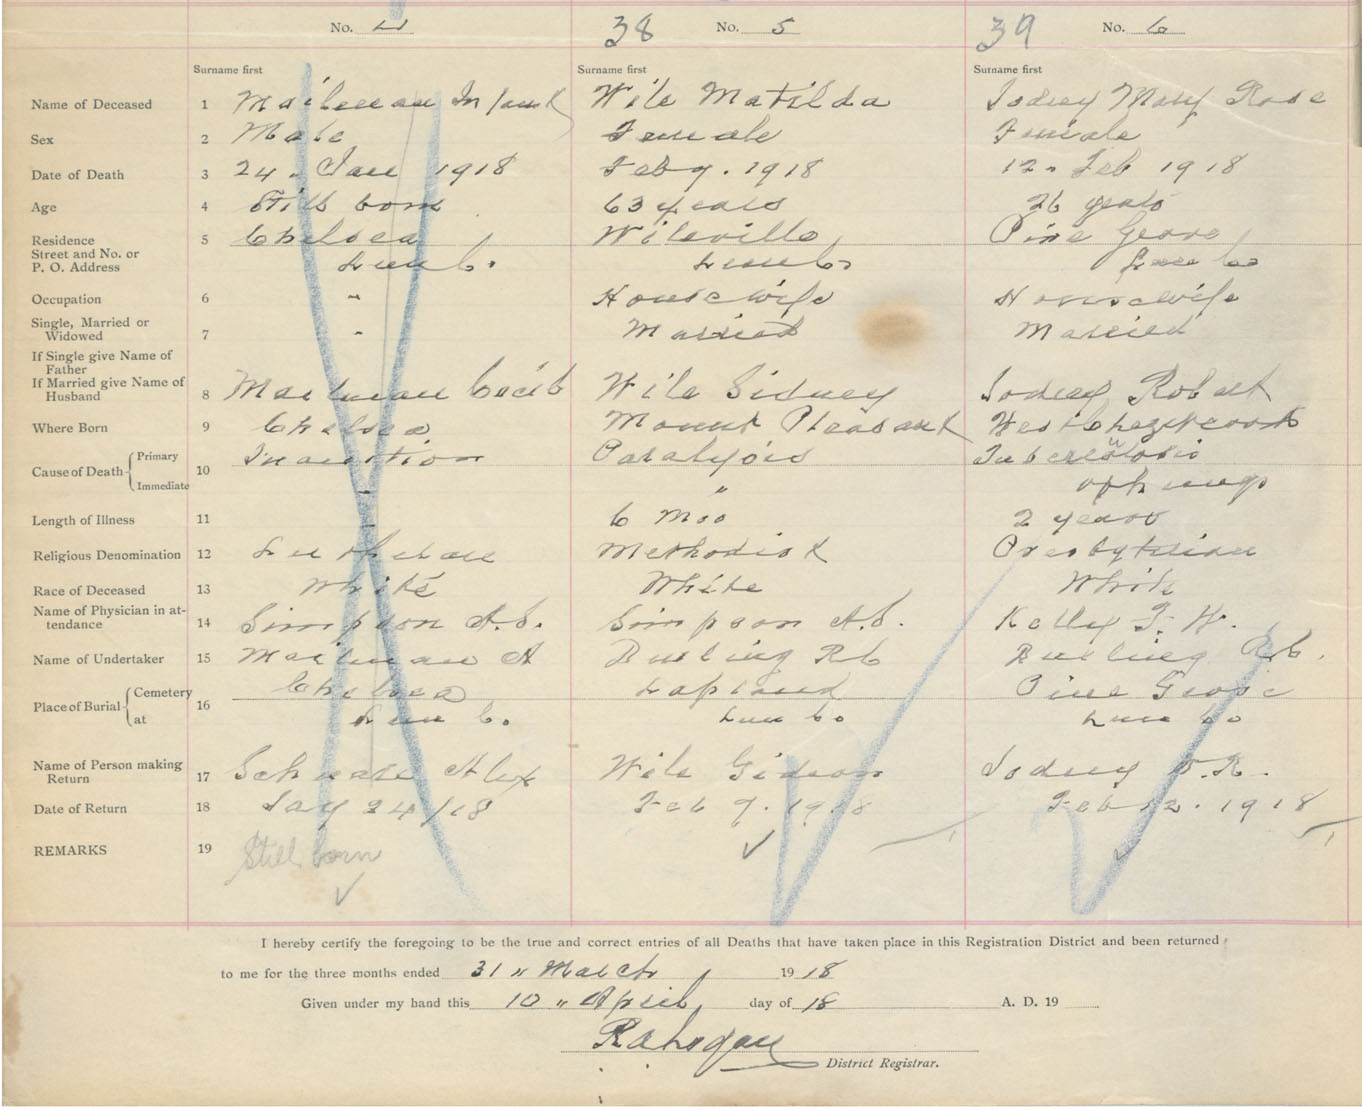 No. 4 38 No. 5 39 No. 6
Surname first Surname first Surname first
Name of Deceased 1 Mailman Infant Wile Matilda Mary Rose
Sex 2 Male Female Female
Date of Death 3 24 " Jan 1918 Feb 7. 1918 12 " Feb 1918
Age 4 Still born 63 years 26 years
Residence 5 Chelsea Wileville Pine Grove
Street and No. or
P. O. Address Lun Co. Lun Co Lun Co
Occupation 6 " Housewife Housewife
Single, Married or
Widowed 7 " Married Married
If Single give Name of
Father
If Married give Name of
Husband 8 Mailman Cecil Wile Sidney Robert
Where Born 9 Chelsea Mount Pleasant West Chezzetcook
Cause of Death Primary 10 Inanition Paralysis Tuberculosis
Immediate " " of lungs
Length of Illness 11 " 6 Mos 2 years
Religious Denomination 12 Lutheran Methodist Presbyterian
Race of Deceased 13 White White White
Name of Physician in at-
tendance 14 Simpson A.S. Simpson A.S. Kelley F. W.
Name of Undertaker 15 Mailman A R C R C.
Place of Burial Cemetery 16 Chelsea Lapland Pine Grove
at Lun C. Lun Co Lun Co
Name of Person making
Return 17 Alex Wile Gideon
Date of Return 18 Jay 24/18 Feb 7. 1918 Feb 12. 1918
REMARKS 19 Still born
I hereby certify the foregoing to be the true and correct entries of all Deaths that have taken place in this Registration District and been returned
to me for the three months ended 31 " March 19 18
Given under my hand this 10 " April day of 18 A. D. 19
District Registrar.